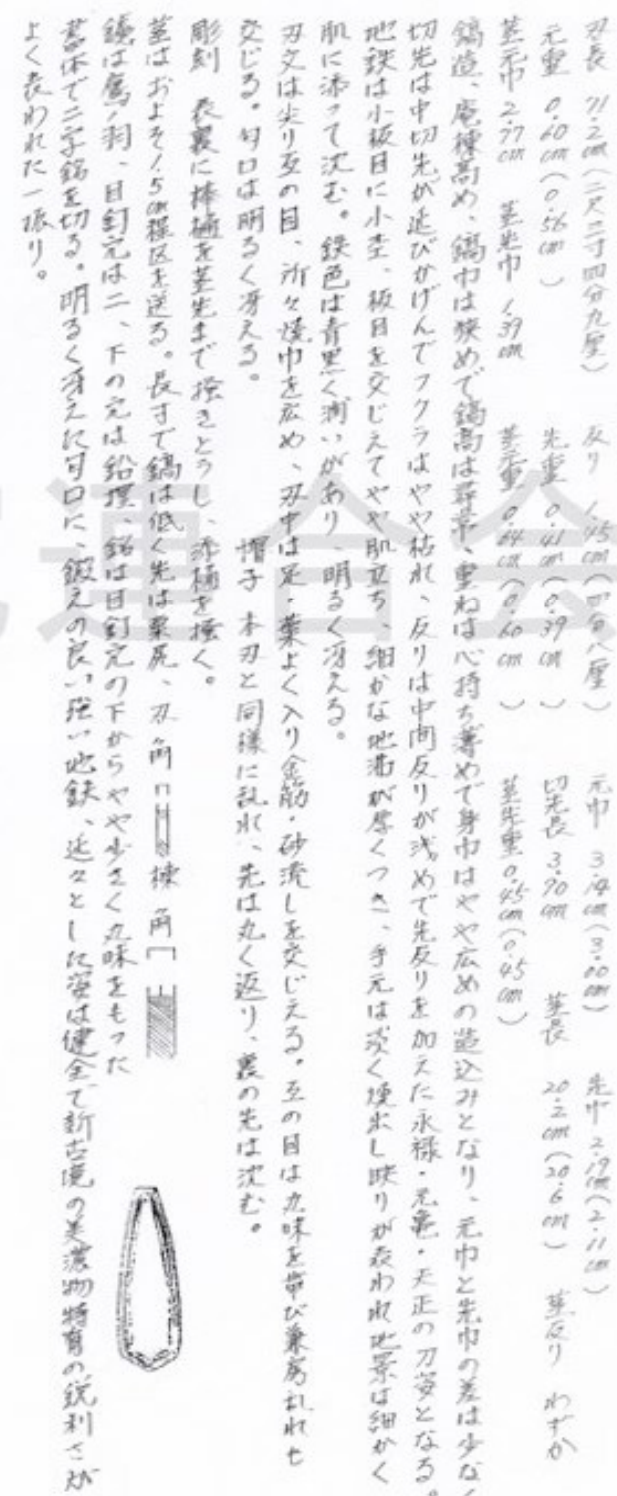 刃長 71.2cm（二尺三寸四分九厘） 反り 1.45cm（四分八厘） 元巾 3.14cm（3.00cm） 先巾 2.19cm（2.11cm）
元重 0.60cm（0.56cm） 先重 0.41cm（0.39cm） 切先長 3.90cm 茎長 20.2cm（20.6cm） 茎反り わずか
茎元巾 2.77cm 茎先巾 1.39cm 茎元重 0.64cm（0.60cm） 茎先重 0.45cm（0.45cm）
鎬造、庵棟高め、鎬巾は狭めで鎬高は尋常、重ねは心持ち薄めで身巾はやや広めの造込みとなり、元巾と先巾の差は少なく
切先は中切先が延びかげんでフクラはやや枯れ、反りは中間反りが浅めで先反りを加えた永禄・元亀・天正の刀姿となる。
地鉄は小板目に小杢、板目を交じえてやや肌立ち、細かな地沸が厚くつき、手元は淡く煙出し映りが表われ地景は細かく
肌に添って沈む。鉄色は青黒く潤いがあり、明るく冴える。
刃文は尖り互の目、所々焼巾を広め、刃中は足・葉よく入り金筋・砂流しを交じえる。互の目は丸味を帯び兼房乱れも
交じる。匂口は明るく冴える。 帽子 本刃と同様に乱れ、先は丸く返り、裏の先は沈む。
彫刻 表裏に棒樋を茎先まで掻きとうし、添樋を掻く。
茎はおよそ1.5cm程区を送る。長寸で鎬は低く先は栗尻、刃角 棟角
鑢は鷹ノ羽、目釘穴は二、下の穴は鉛埋、銘は目釘穴の下からやや小さく丸味をもった
書体で二字銘を切る。明るく冴えた匂口に、鍛えの良い強い地鉄、延々とした姿は健全で新古境の美濃物特有の鋭利さが
よく表われた一振り。
連合会